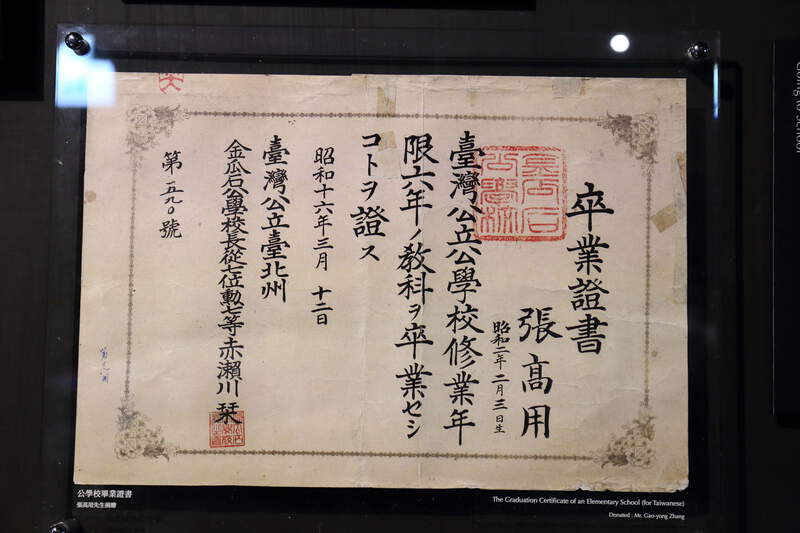 卒業證書
張高用
昭和二年二月三日生
臺灣公立公學校修業年
限六年ノ教科ヲ卒業セシ
コトヲ證ス
昭和十六年三月十二日
臺灣公立臺北州
金瓜石公學校長從七位勳七等赤瀨川栞
第一五九〇號
公學校畢業證書
張高用先生捐贈
The Graduation Certificate of an Elementary School (for Taiwanese)
Donated : Mr. Gao-yong Zhang
Going to School